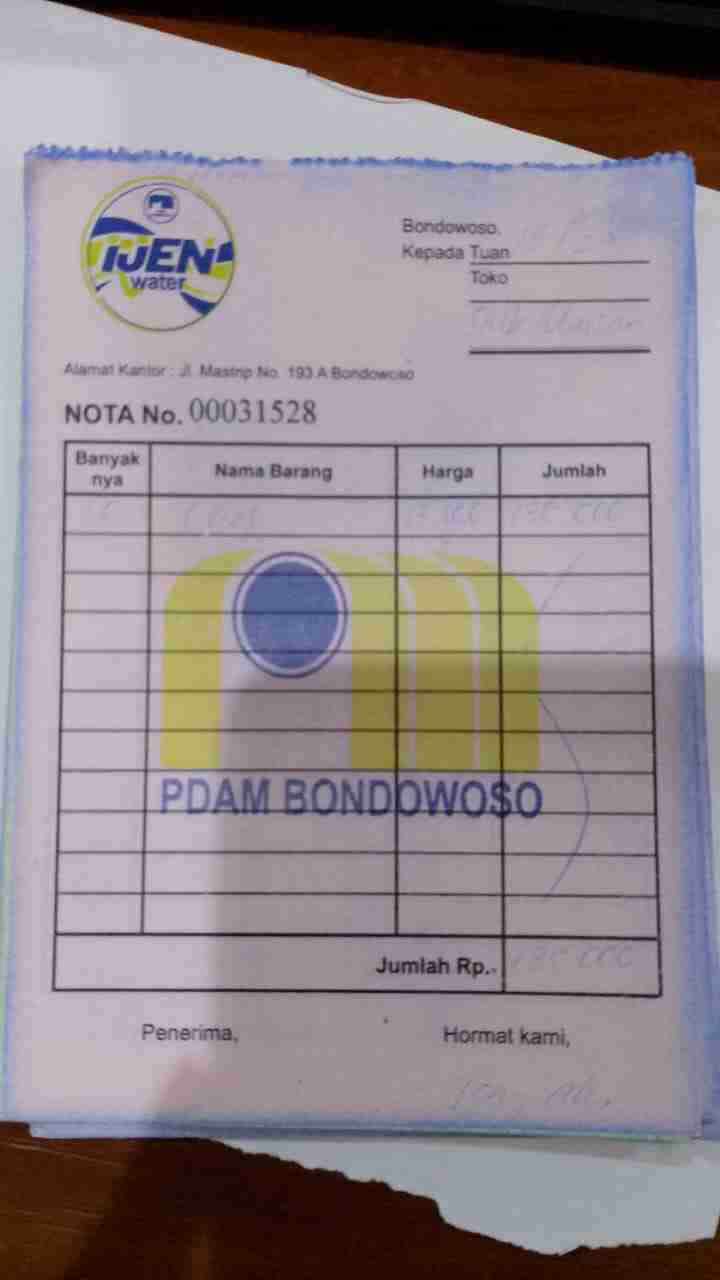 IJEN
water
Bondowoso,
Kepada Tuan
Toko
Alamat Kantor : Jl. Mastrip No. 193 A Bondowoso
NOTA No. 00031528
Banyak nya Nama Barang Harga Jumlah
PDAM BONDOWOSO
Jumlah Rp.-
Penerima, Hormat kami,